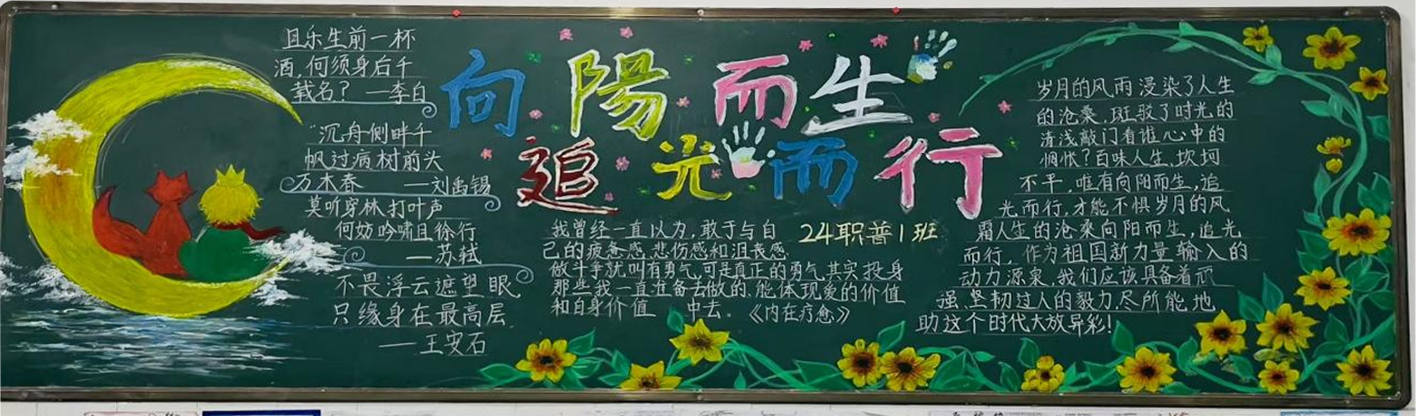 且乐生前一杯
酒,何须身后千
载名? —李白
"沉舟侧畔千
帆过病树前头
万木春 ——刘禹锡
莫听穿林打叶声
何妨吟啸且徐行
——苏轼
不畏浮云遮望眼,
只缘身在最高层.
——王安石
向陽而生
追光而行
24职普1班
我曾经一直以为,敢于与自
己的疲惫感.悲伤感和沮丧感
做斗争就叫有勇气,可是真正的勇气其实投身
那些我一直准备去做的,能体现爱的价值
和自身价值 中去。《内在疗愈》
岁月的风雨浸染了人生
的沧桑,斑驳了时光的
清浅敲门看谁心中的
惆怅?百味人生,坎坷
不平,唯有向阳而生,追
光而行,才能不惧岁月的风
霜人生的沧桑向阳而生,追光
而行,作为祖国新力量输入的
动力源泉,我们应该具备着顽
强、坚韧过人的毅力尽所能地
助这个时代大放异彩!